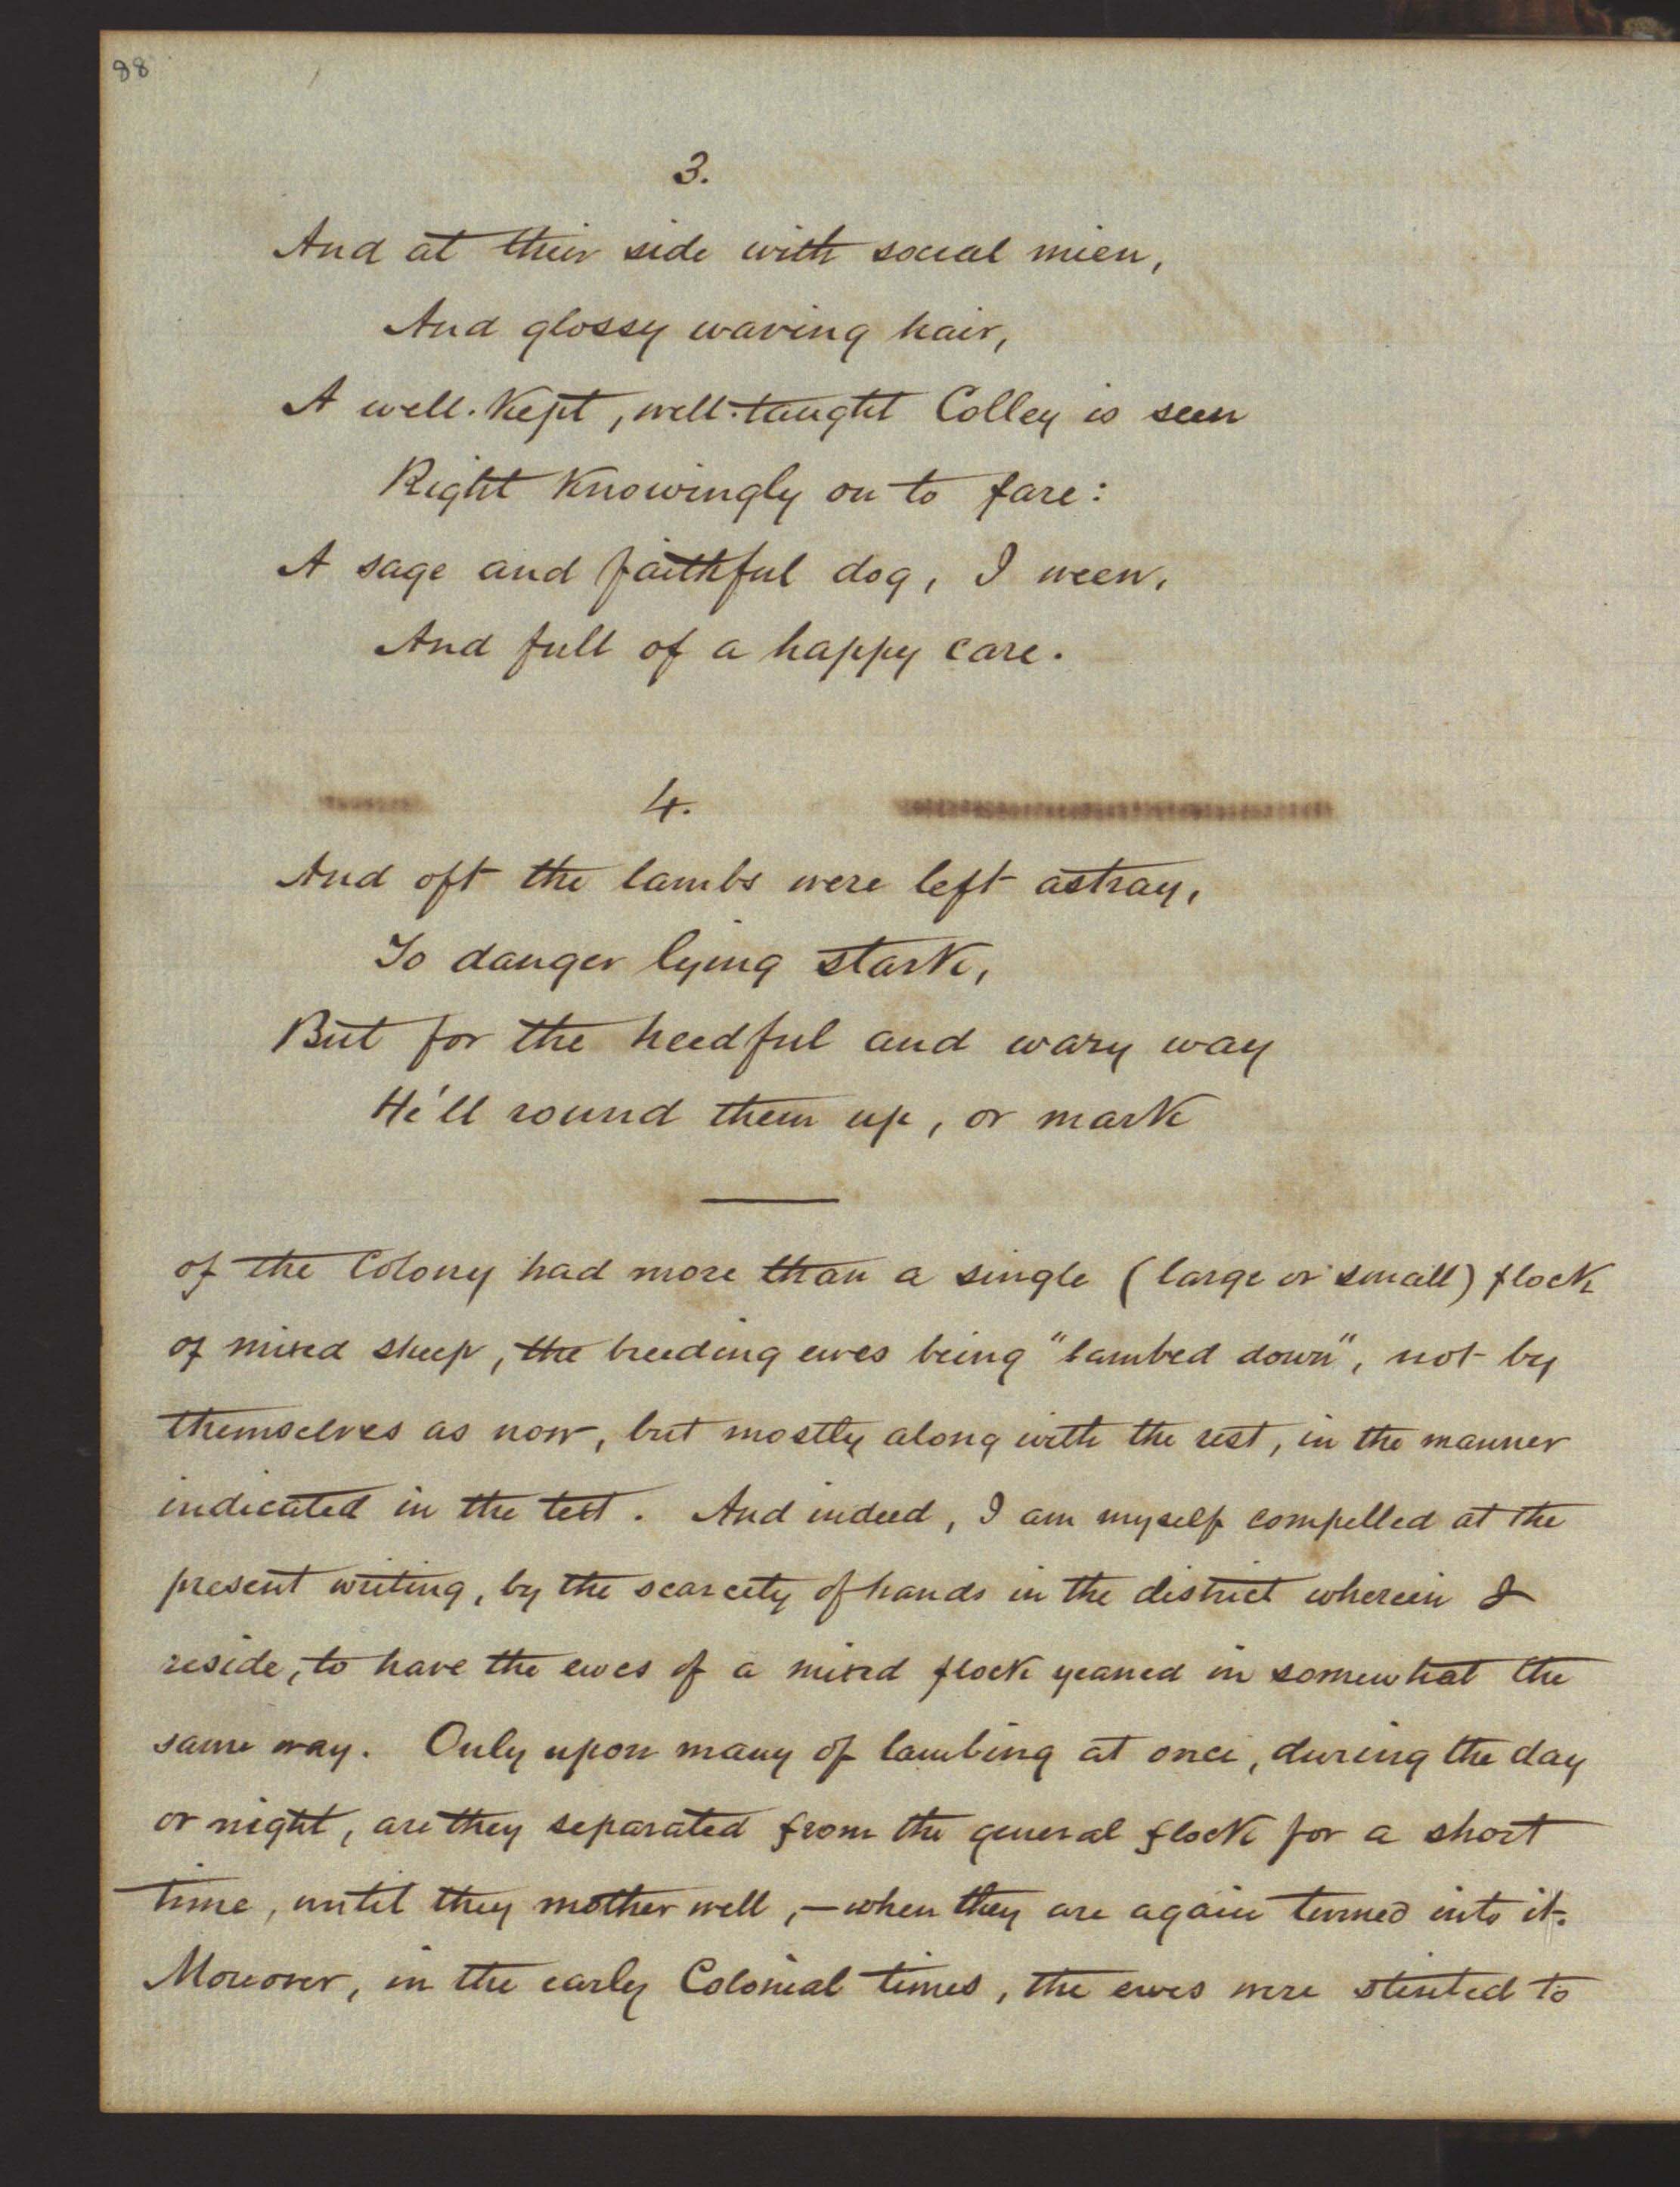 88
3.
And at their side with social mien,
And glossy waving hair,
A well-kept, well-taught Colley is seen
Right knowingly on to fare:
A sage and faithful dog, I ween,
And full of a happy care.
4.
And oft the lambs were left astray,
To danger lying stark,
But for the heedful and wary way
He'll round them up, or mark
of the Colony had more than a single (large or small) flock
of mixed sheep, the breeding ewes being "lambed down", not by
themselves as now, but mostly along with the rest, in the manner
indicated in the text. And indeed, I am myself compelled at the
present writing, by the scarcity of hands in the district wherein I
reside, to have the ewes of a mixed flock yeaned in somewhat the
same way. Only upon many of lambing at once, during the day
or night, are they separated from the general flock for a short
time, until they mother well, — when they are again turned into it.
Moreover, in the early Colonial times, the ewes were stinted to